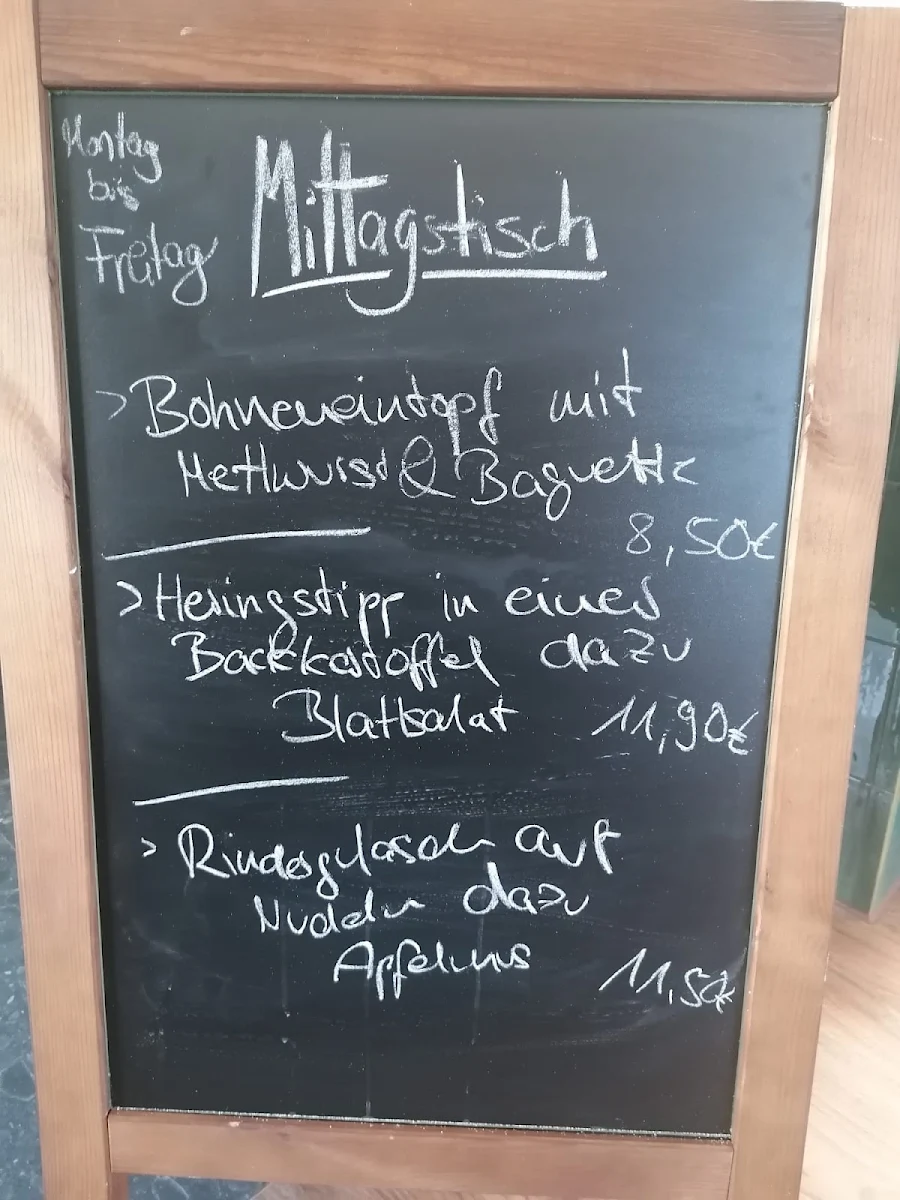 Montag
bis
Freitag
Mittagstisch
> Bohneneintopf mit
Mettwurst & Baguette
8,50€
> Heringstipp in einer
Backkartoffel dazu
Blattsalat 11,90€
> Rindergulasch auf
Nudeln dazu
Apfelmus 11,50€